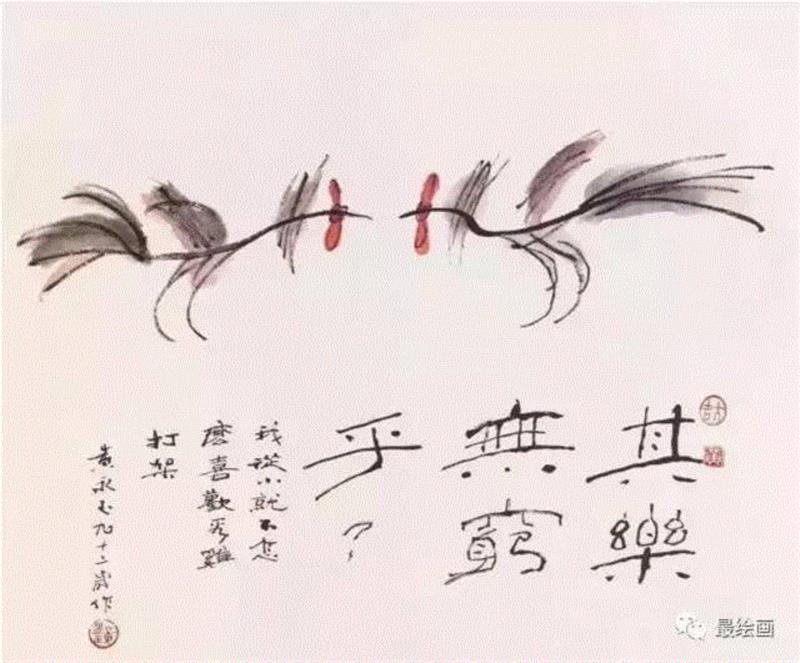 其樂
無窮
乎？
我從小就不怎
麼喜歡看雞
打架
黃永玉九十二歲作
最绘画